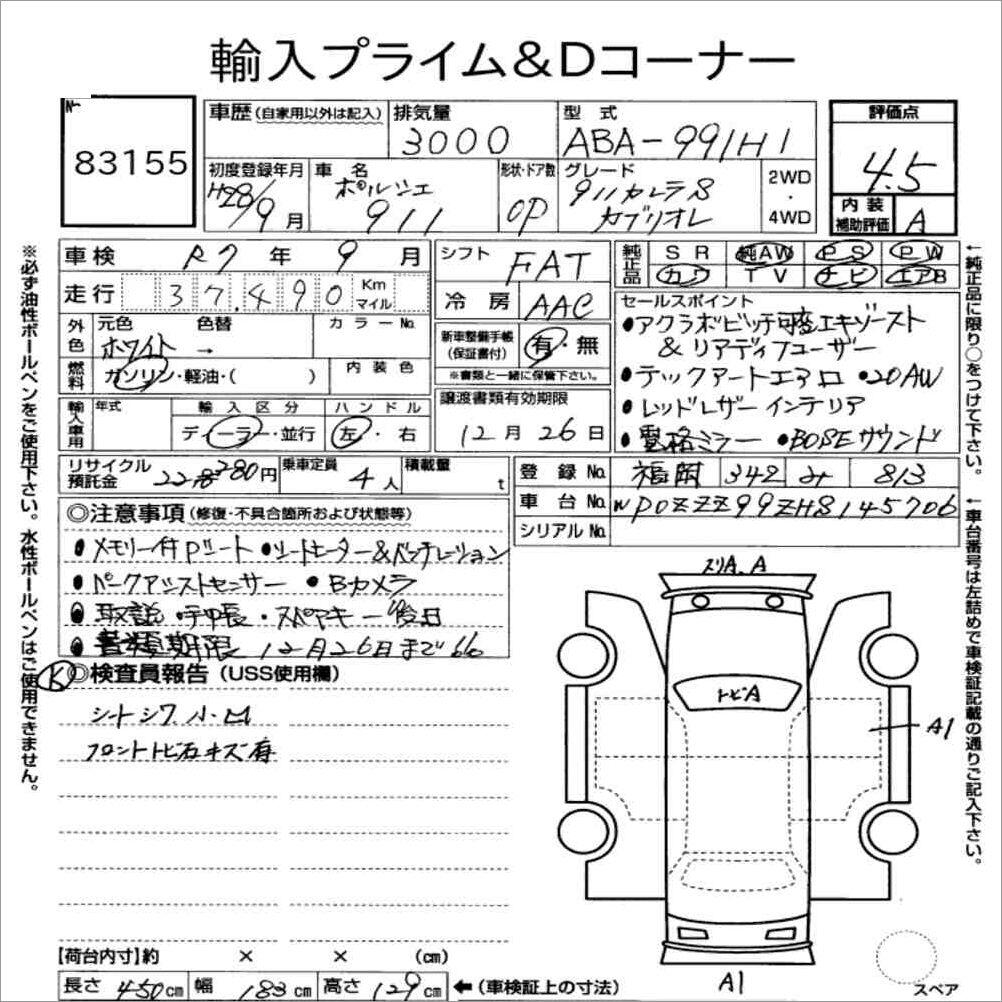 輸入プライム&Dコーナー
No.
83155
車歴(自家用以外は記入)
排気量
3000
型式
ABA-991H1
評価点
4.5
初度登録年月
H28/9月
車名
ポルシェ
911
形状・ドア数
OP
グレード
911カレラS
カブリオレ
2WD
・
4WD
内装
補助評価
A
車検 R7年 9月
シフト FAT
純正品
SR 純AW PS PW
カワ TV ナビ エアB
走行 37,490 Km
マイル
冷房 AAC
セールスポイント
外色
元色 色替 カラーNo.
ホワイト →
新車整備手帳
(保証書付)
有・無
※書類と一緒に保管下さい。
●アクラポビッチ可変エキゾースト
&リアディフューザー
燃料
ガソリン・軽油・( )
内装色
●テックアートエアロ ●20AW
輸入車用
年式
輸入区分
ディーラー・並行
ハンドル
左・右
譲渡書類有効期限
12月26日
●レッドレザーインテリア
●電格ミラー ●BOSEサウンド
リサイクル
預託金
280円
乗車定員
4人
積載量
t
登録No. 福岡 342 み 813
車台No. WP0ZZZ99ZHS145706
シリアルNo.
◎注意事項(修復・不具合箇所および状態等)
●メモリー付Pシート ●シートヒーター&ベンチレーション
●パークアシストセンサー ●Bカメラ
●取説・手帳・スペアキー一後日
●書類期限 12月26日まで
K
◎検査員報告(USS使用欄)
シートシワ 小凹
フロントトビ石キズ有
スリA、A
トビA
A1
A1
スペア
【荷台内寸】約 × × (cm)
長さ 450cm 幅 183cm 高さ 129cm ←(車検証上の寸法)
※必ず油性ボールペンをご使用下さい。水性ボールペンはご使用できません。
←純正品に限り○をつけて下さい。
←車台番号は左詰めで車検証記載の通りご記入下さい。